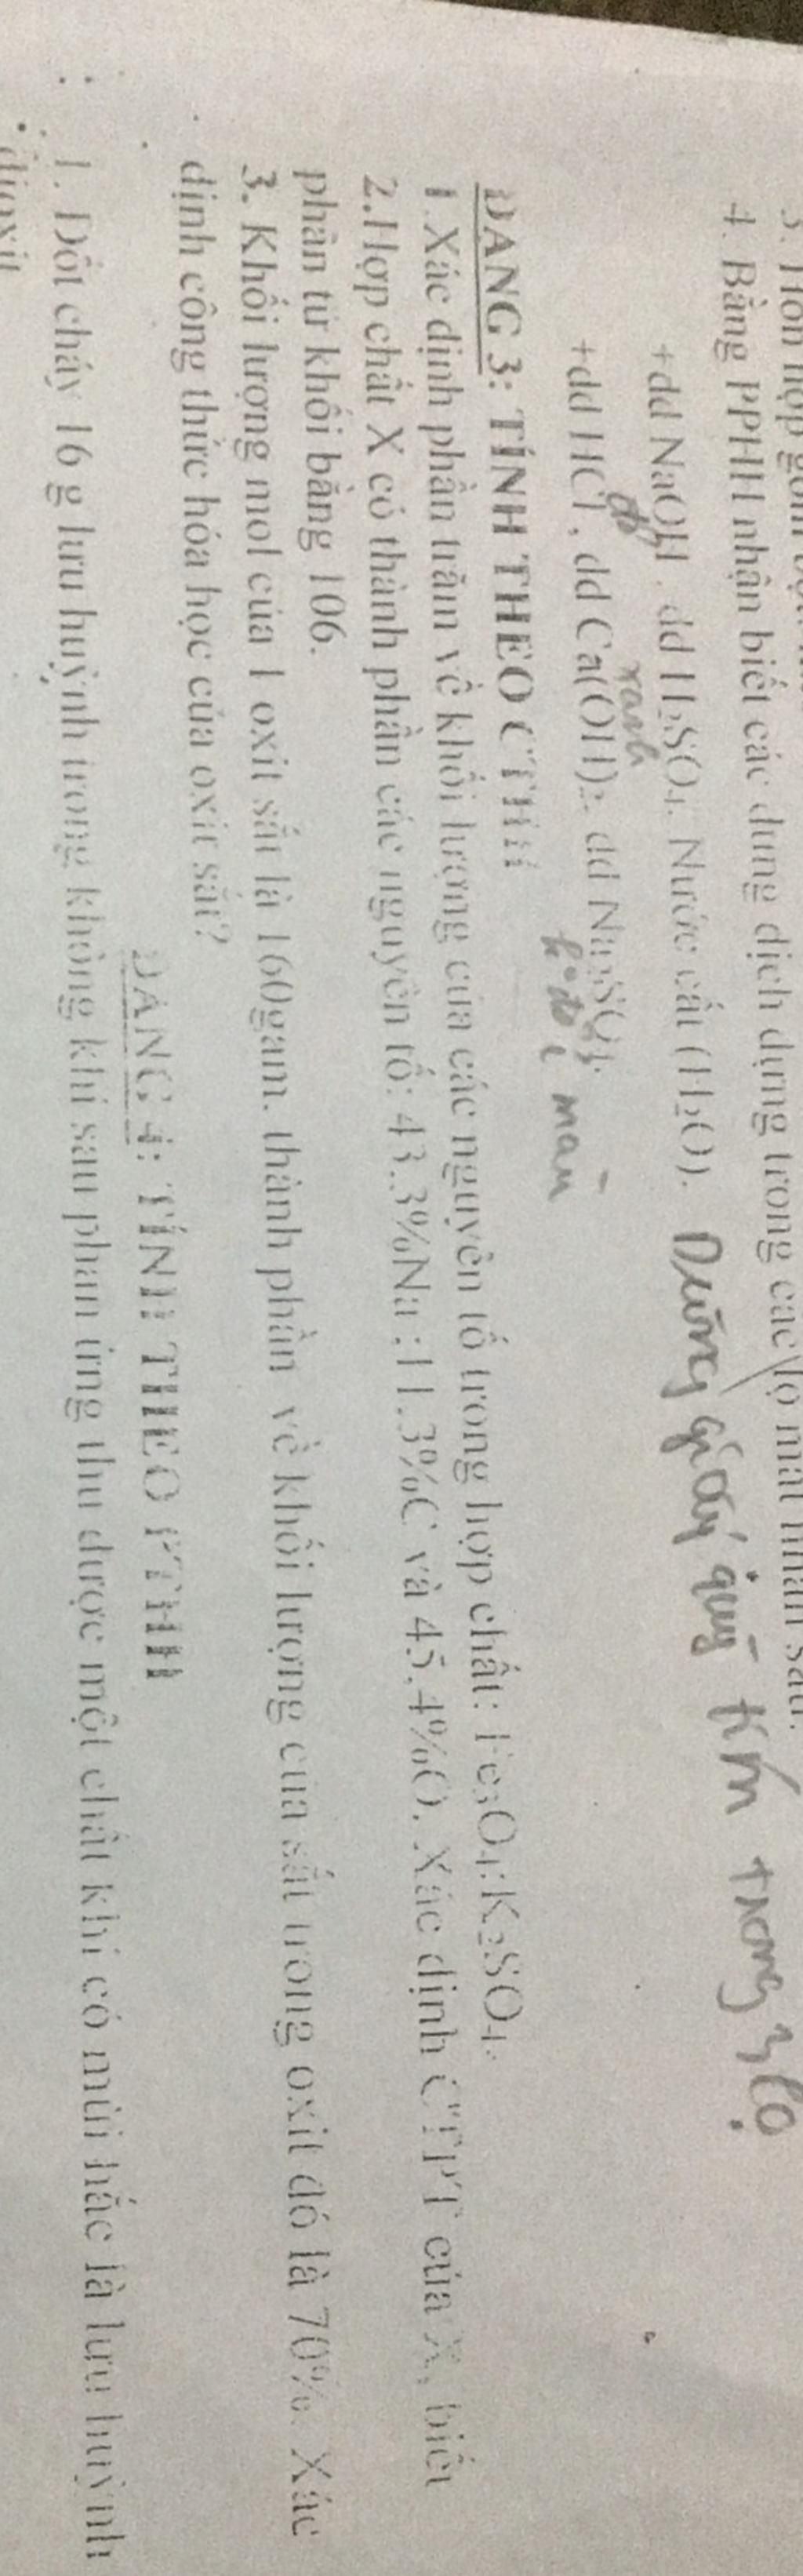 3. Hỗn hợp gồm
4. Bằng PPHH nhận biết các dung dịch đựng trong các lọ mất nhãn sau:
+dd NaOH, dd H₂SO₄, Nước cất (H₂O). Dùng giấy quỳ tím trong 3 lọ
đỏ xanh
+dd HCl, dd Ca(OH)₂, dd Na₂SO₄.
màu
DẠNG 3: TÍNH THEO CTHH
1.Xác định phần trăm về khối lượng của các nguyên tố trong hợp chất: Fe₃O₄;K₂SO₄.
2.Hợp chất X có thành phần các nguyên tố: 43.3%Na ;11.3%C và 45,4%O. Xác định CTPT của X, biết
phân tử khối bằng 106.
3. Khối lượng mol của 1 oxit sắt là 160gam. thành phần về khối lượng của sắt trong oxit đó là 70%. Xác
định công thức hóa học của oxit sắt?
DẠNG 4: TÍNH THEO PTHH
1. Đốt cháy 16 g lưu huỳnh trong không khí sau phản ứng thu được một chất khí có mùi hắc là lưu huỳnh
đioxit